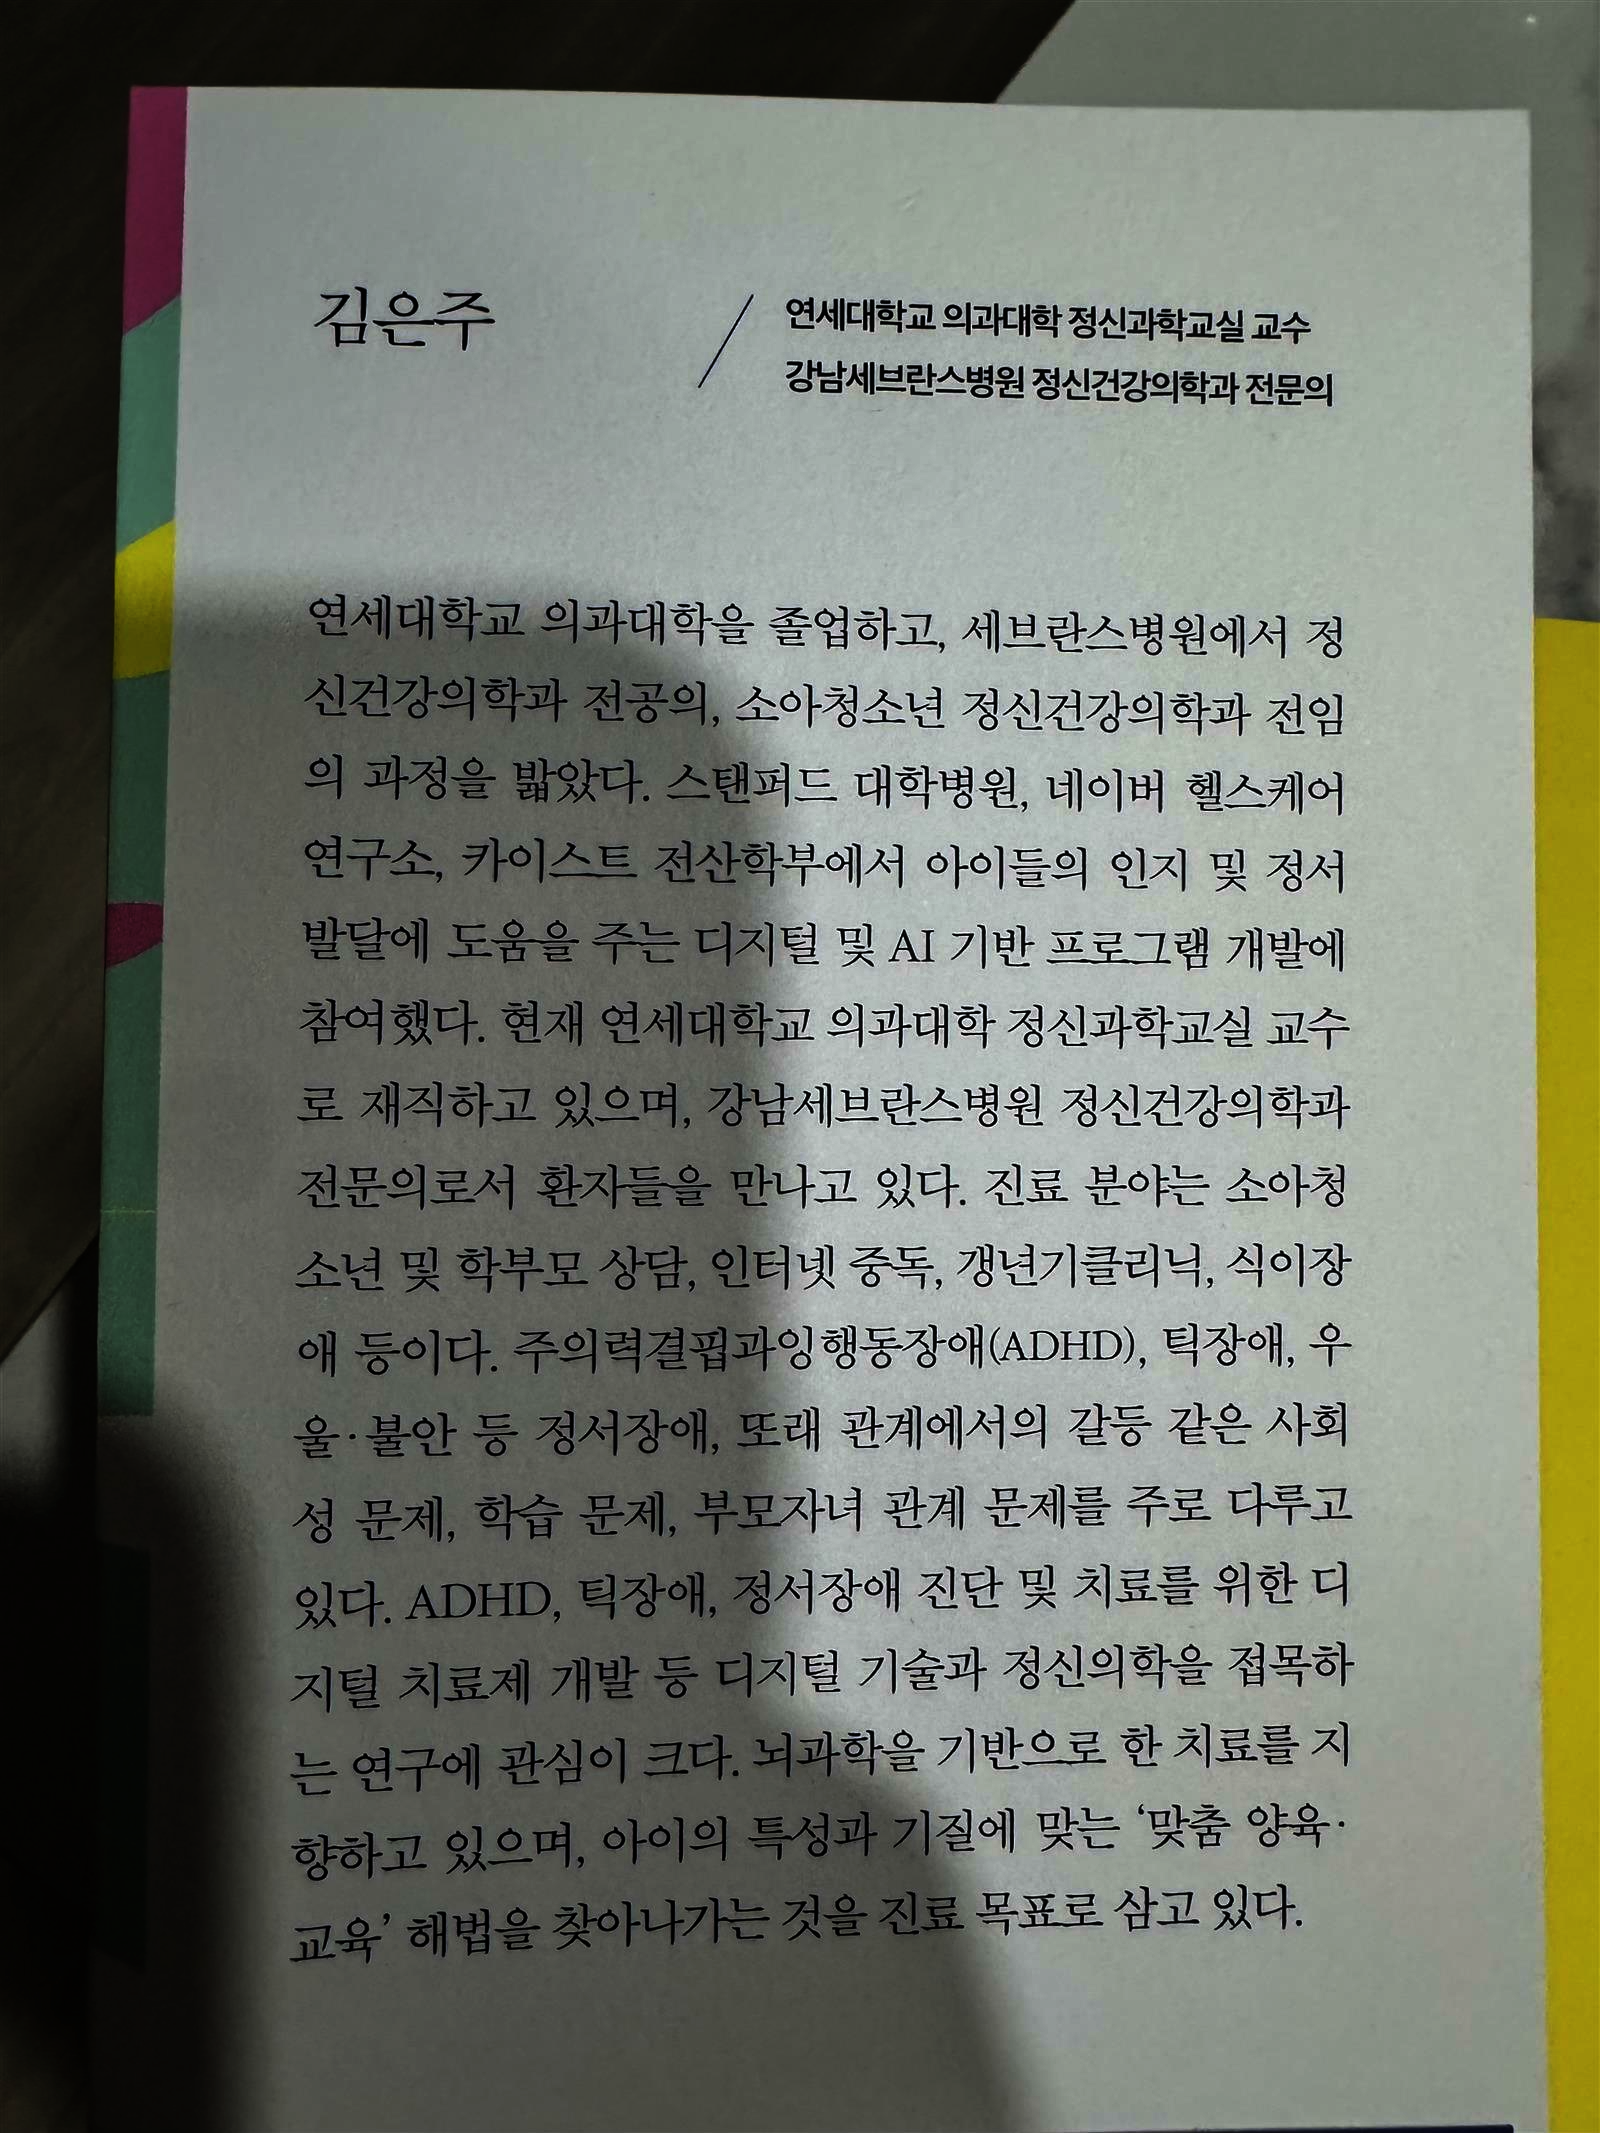 김은주
연세대학교 의과대학 정신과학교실 교수
강남세브란스병원 정신건강의학과 전문의
연세대학교 의과대학을 졸업하고, 세브란스병원에서 정
신건강의학과 전공의, 소아청소년 정신건강의학과 전임
의 과정을 밟았다. 스탠퍼드 대학병원, 네이버 헬스케어
연구소, 카이스트 전산학부에서 아이들의 인지 및 정서
발달에 도움을 주는 디지털 및 AI 기반 프로그램 개발에
참여했다. 현재 연세대학교 의과대학 정신과학교실 교수
로 재직하고 있으며, 강남세브란스병원 정신건강의학과
전문의로서 환자들을 만나고 있다. 진료 분야는 소아청
소년 및 학부모 상담, 인터넷 중독, 갱년기클리닉, 식이장
애 등이다. 주의력결핍과잉행동장애(ADHD), 틱장애, 우
울·불안 등 정서장애, 또래 관계에서의 갈등 같은 사회
성 문제, 학습 문제, 부모자녀 관계 문제를 주로 다루고
있다. ADHD, 틱장애, 정서장애 진단 및 치료를 위한 디
지털 치료제 개발 등 디지털 기술과 정신의학을 접목하
는 연구에 관심이 크다. 뇌과학을 기반으로 한 치료를 지
향하고 있으며, 아이의 특성과 기질에 맞는 ‘맞춤 양육·
교육’ 해법을 찾아나가는 것을 진료 목표로 삼고 있다.